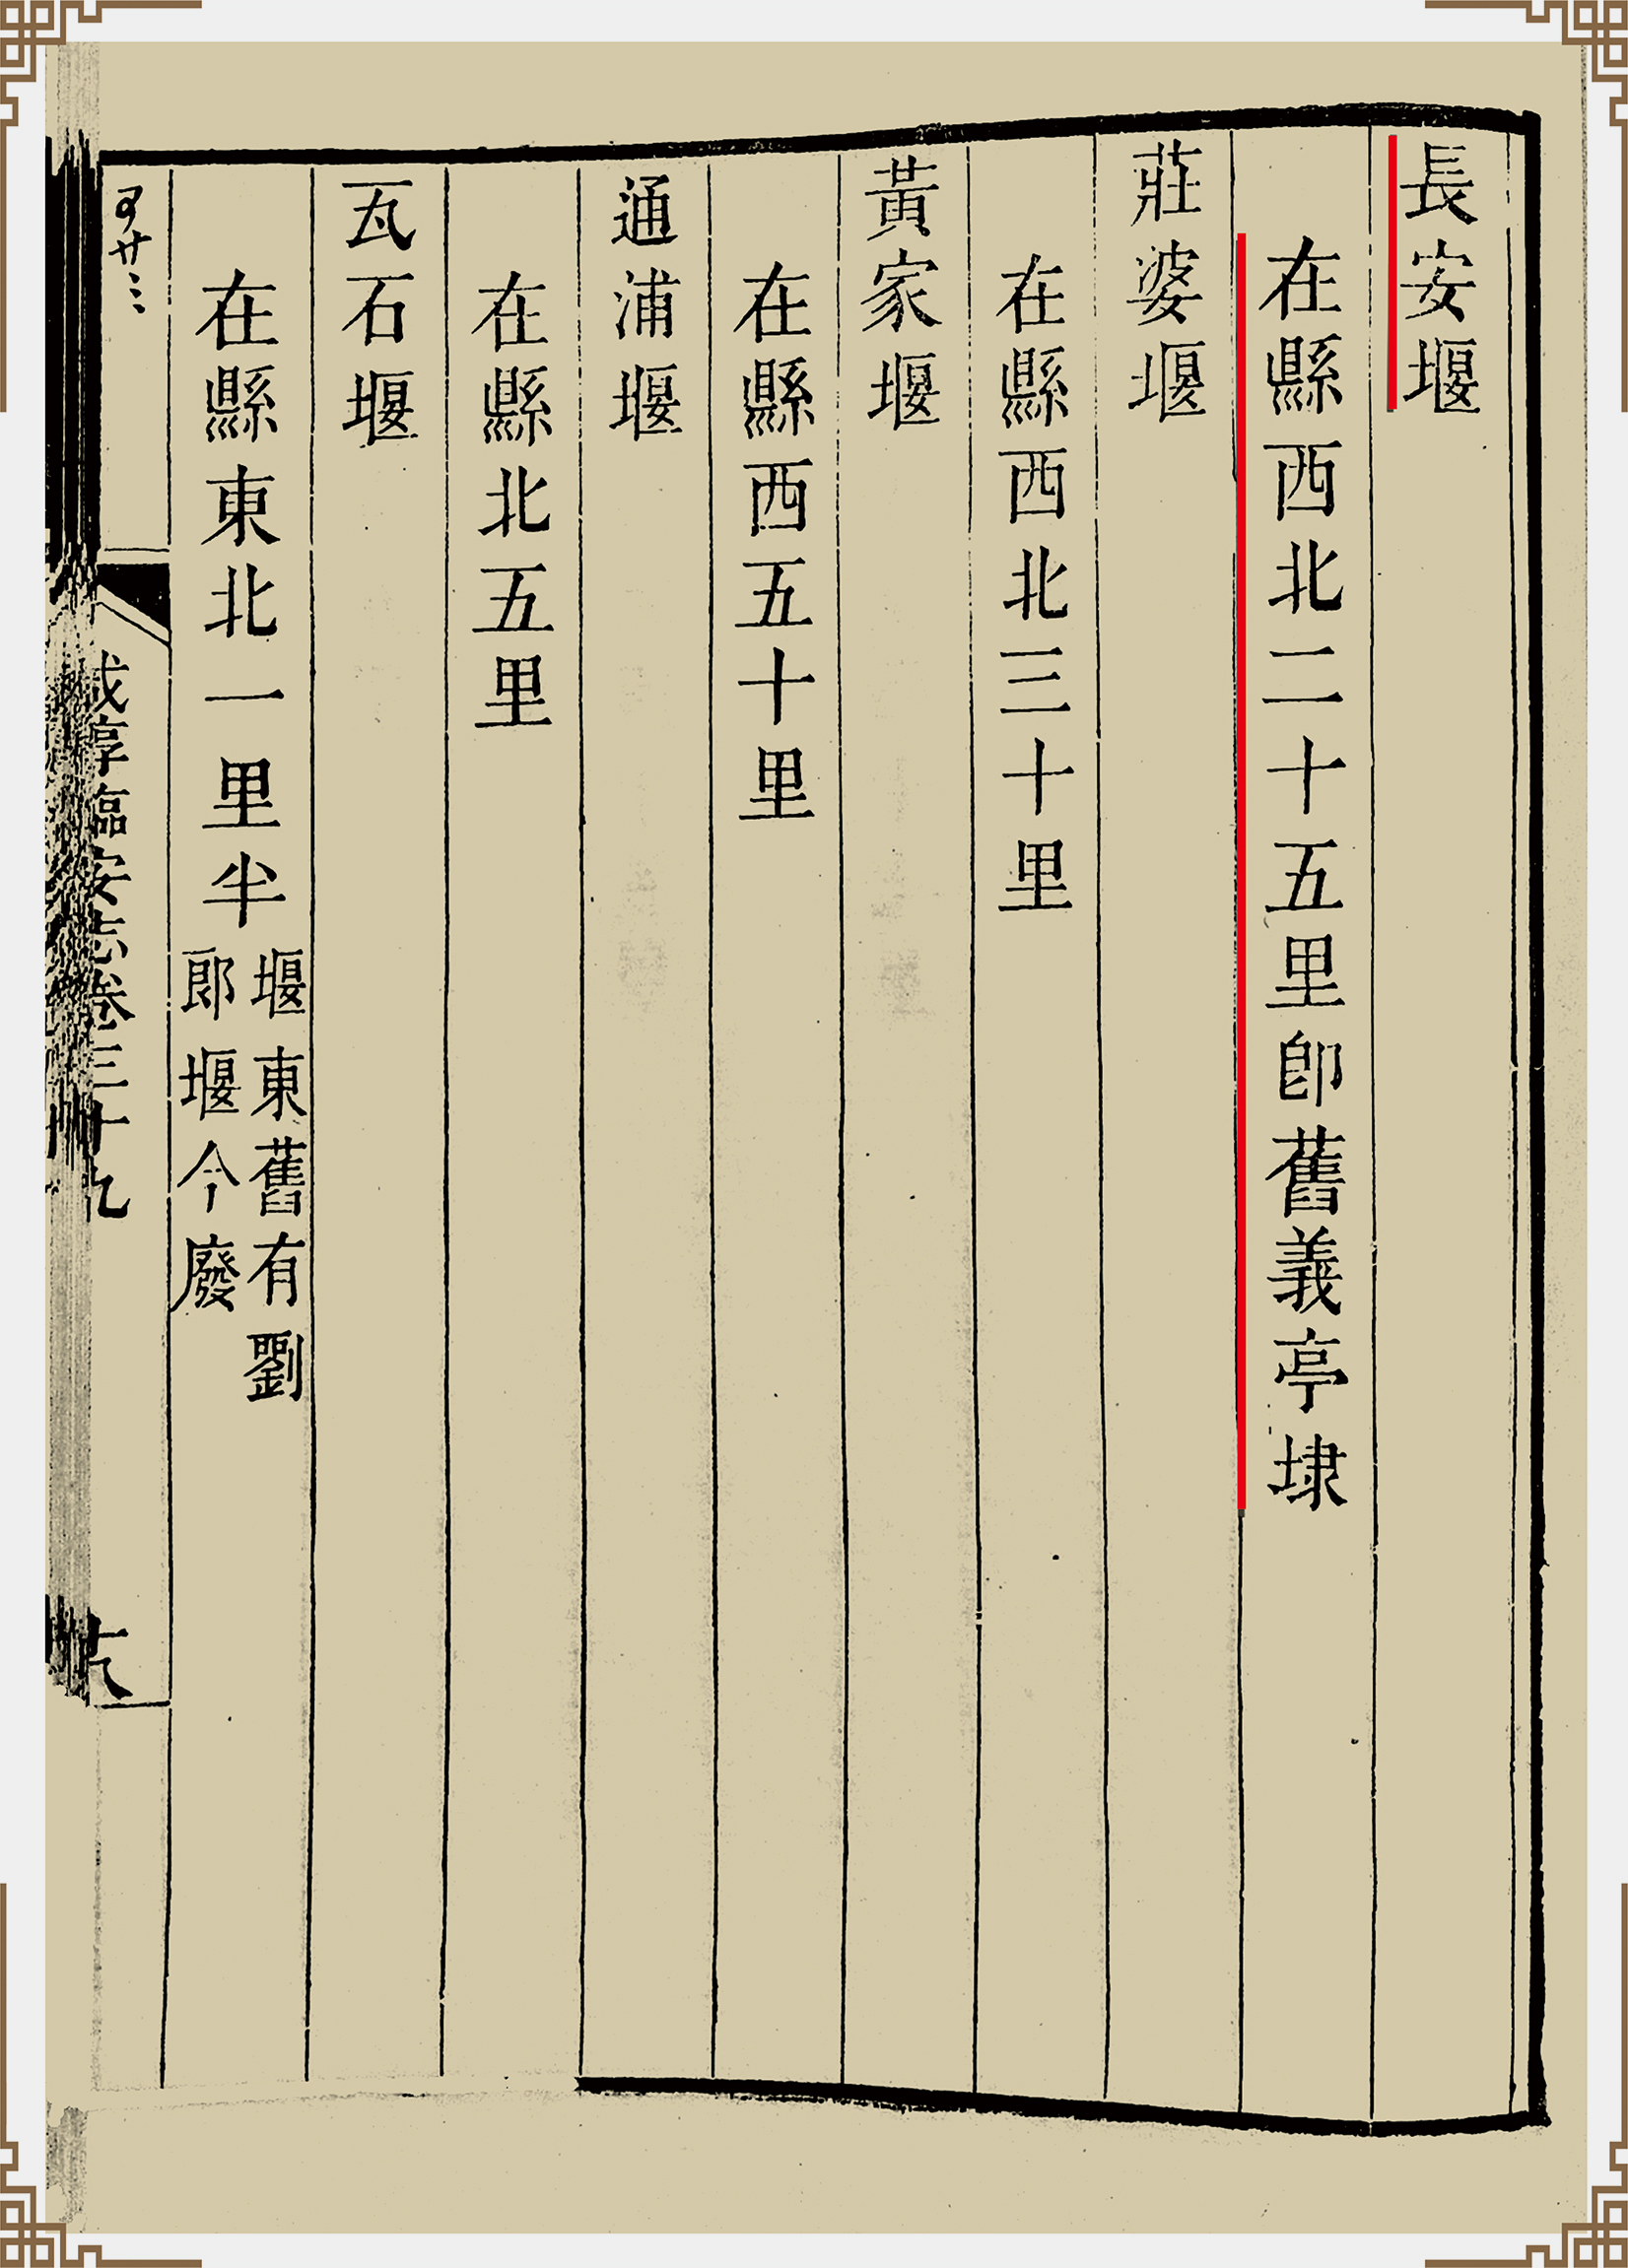 長安堰
在縣西北二十五里卽舊義亭埭
莊婆堰
在縣西北三十里
黃家堰
在縣西五十里
通浦堰
在縣北五里
瓦石堰
在縣東北一里半堰東舊有劉
郞堰今廢
咸淳臨安志卷三十九